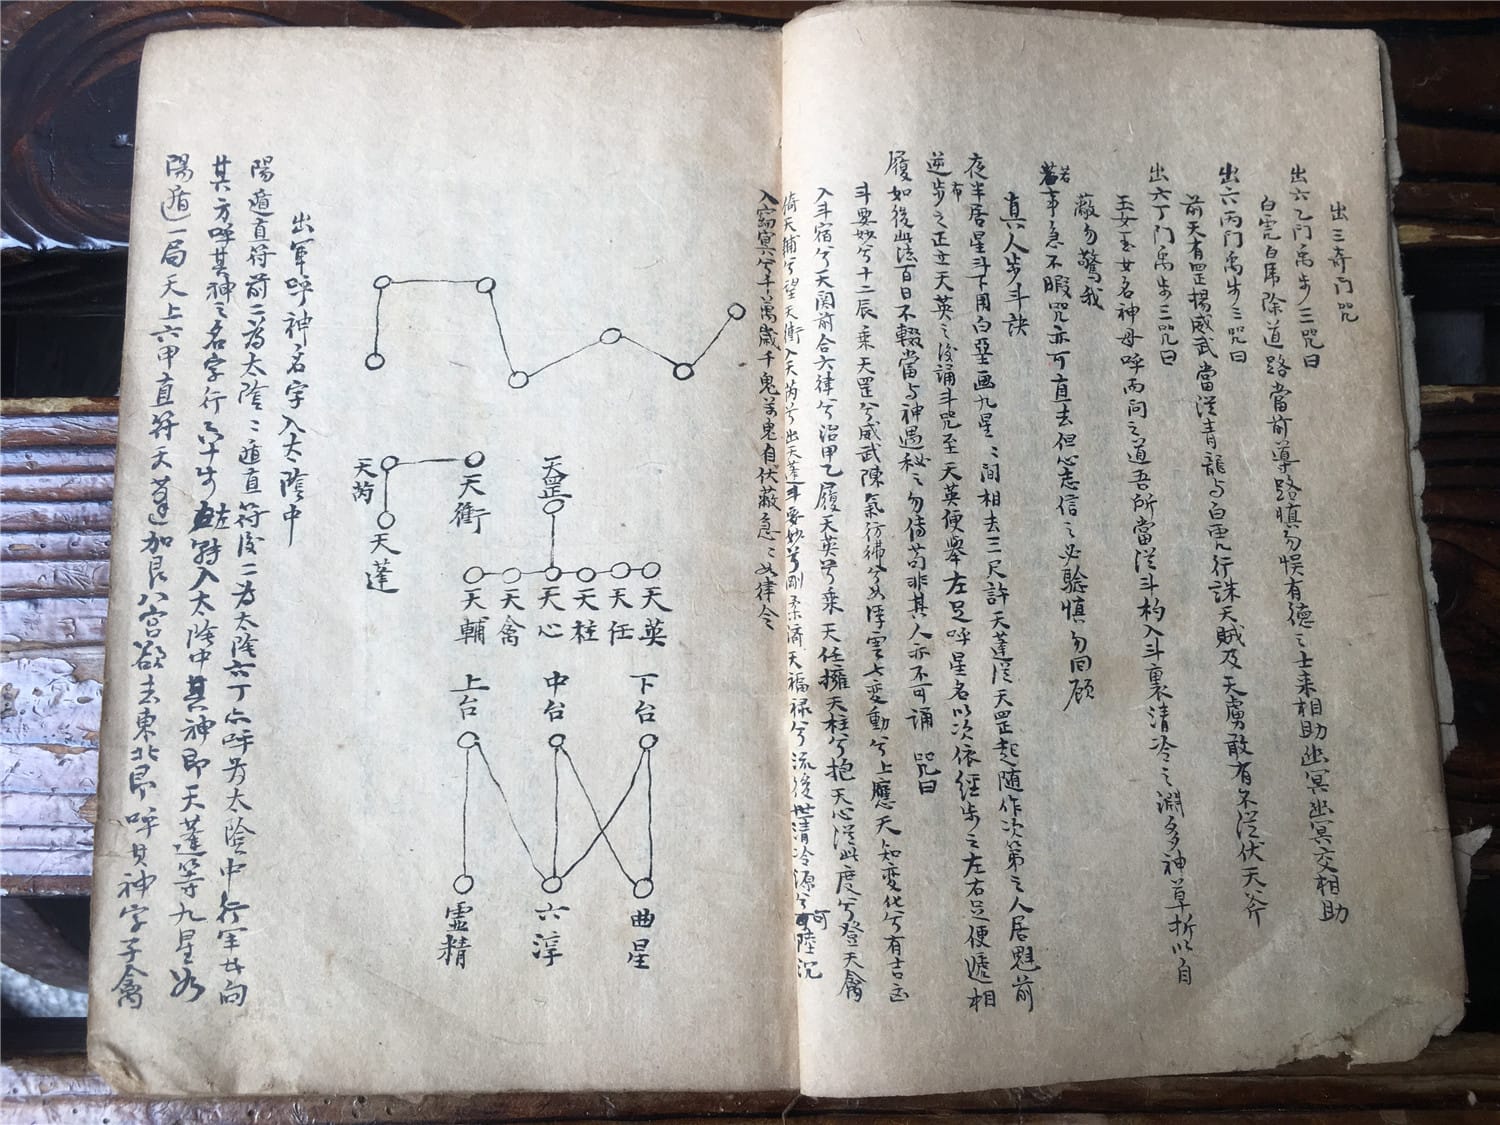 出三奇門咒
出六乙門禹步三咒曰
白虎白馬除道路當前導路慎勿悮有德之士來相助幽冥幽冥交相助
出六丙門禹步三咒曰
前天有罡揚威武當從青龍与白虎行誅天賊及天虜敢有不從伏天斧
出六丁門禹步三咒曰
玉女玉女名神母呼丙问之道吾所當從斗杓入斗裏清冷之淵多神草折以自
蔽勿驚我
若事急不暇咒亦可直去但心志信之必驗慎勿回顧
真人步斗訣
夜半居星斗下用白堊画九星〻間相去三尺許天蓬從天罡起隨作次第之人居魁前
逆步之正立天英之後誦斗咒至天英便舉左足呼星名以次依經步之左右足便遞相
履如後此法百日不輟當与神遇秘之勿傳苟非其人亦不可誦 咒曰
斗要妙兮十二辰乘天罡兮威武陳氣彷彿兮如浮雲七变動兮上應天知变化兮有吉凶
入斗宿兮天関前合六律兮治甲乙履天英兮乘天任擁天柱兮抱天心從此度兮登天禽
倚天輔兮望天衝入天芮兮出天蓬斗要妙兮剛柔濟天福禄兮流後世清冷源兮可陸沉
入窈冥兮千萬歲千鬼萬鬼自伏蔽急〻如律令
天芮
天蓬
天衝
天罡
天輔
天禽
天心
天柱
天任
天英
上台
中台
下台
靈精
六淳
曲星
出軍呼神名字入太陰中
陽遁直符前二为太陰〻遁直符後二为太陰六丁亦呼为太陰中行軍廿向
其方呼其神之名字行六十步左轉入太陰中其神即天蓬等九星如
陽遁一局天上六甲直符天蓬加艮八宮欲去東北即呼其神字子禽